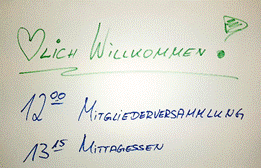 ♡lich Willkommen!
12⁰⁰ Mitgliederversammlung
13¹⁵ Mittagessen